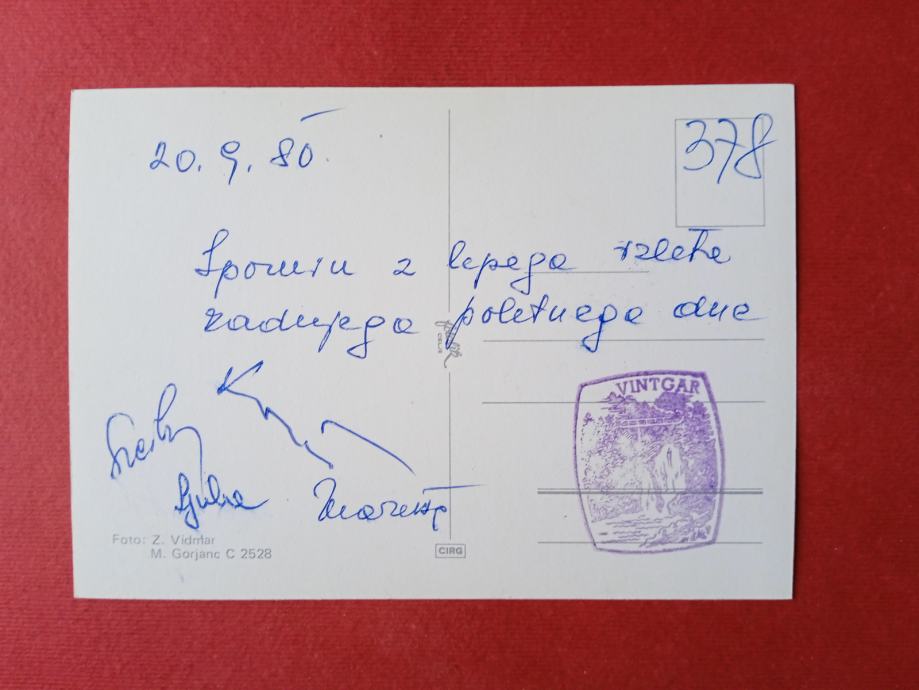 20. 9. 80.
378
Spomin z lepega izleta
zadnjega poletnega dne
Ljuba
VINTGAR
Foto: Z. Vidmar
M. Gorjanc C 2528
CIRG